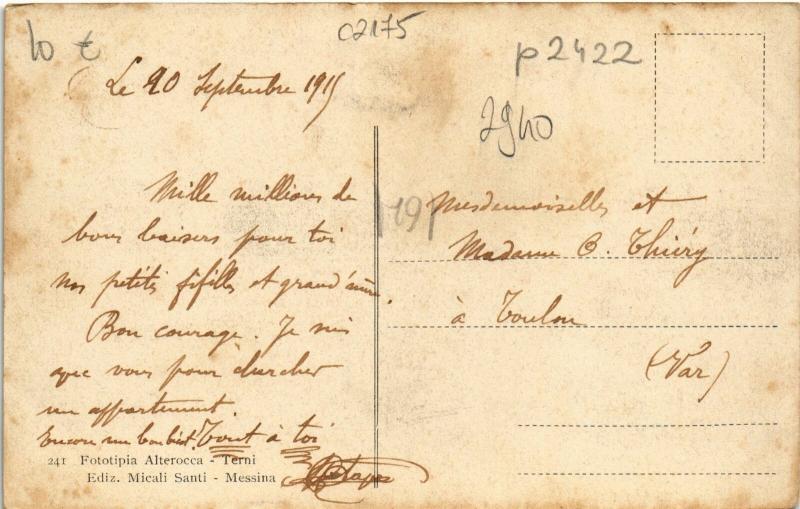 10 €
02175
p2422
2940
Le 20 Septembre 1915
Mille millions de
bons baisers pour toi
nos petites fifilles et grand'mère.
Bon courage. Je suis
avec vous pour chercher
un appartement.
Encore un bon Tout à toi
241 Fototipia Alterocca - Terni
Ediz. Micali Santi - Messina
Mesdemoiselles et
Madame C. Thiéry
à Toulon
(Var)